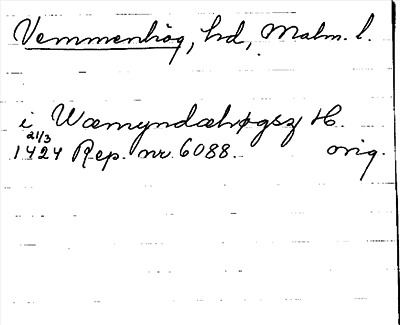 Vemmenhög, hd, Malm. l.
i Wæmyndæhøgsz H.
21/3
1424 Rep. nr. 6088. orig.